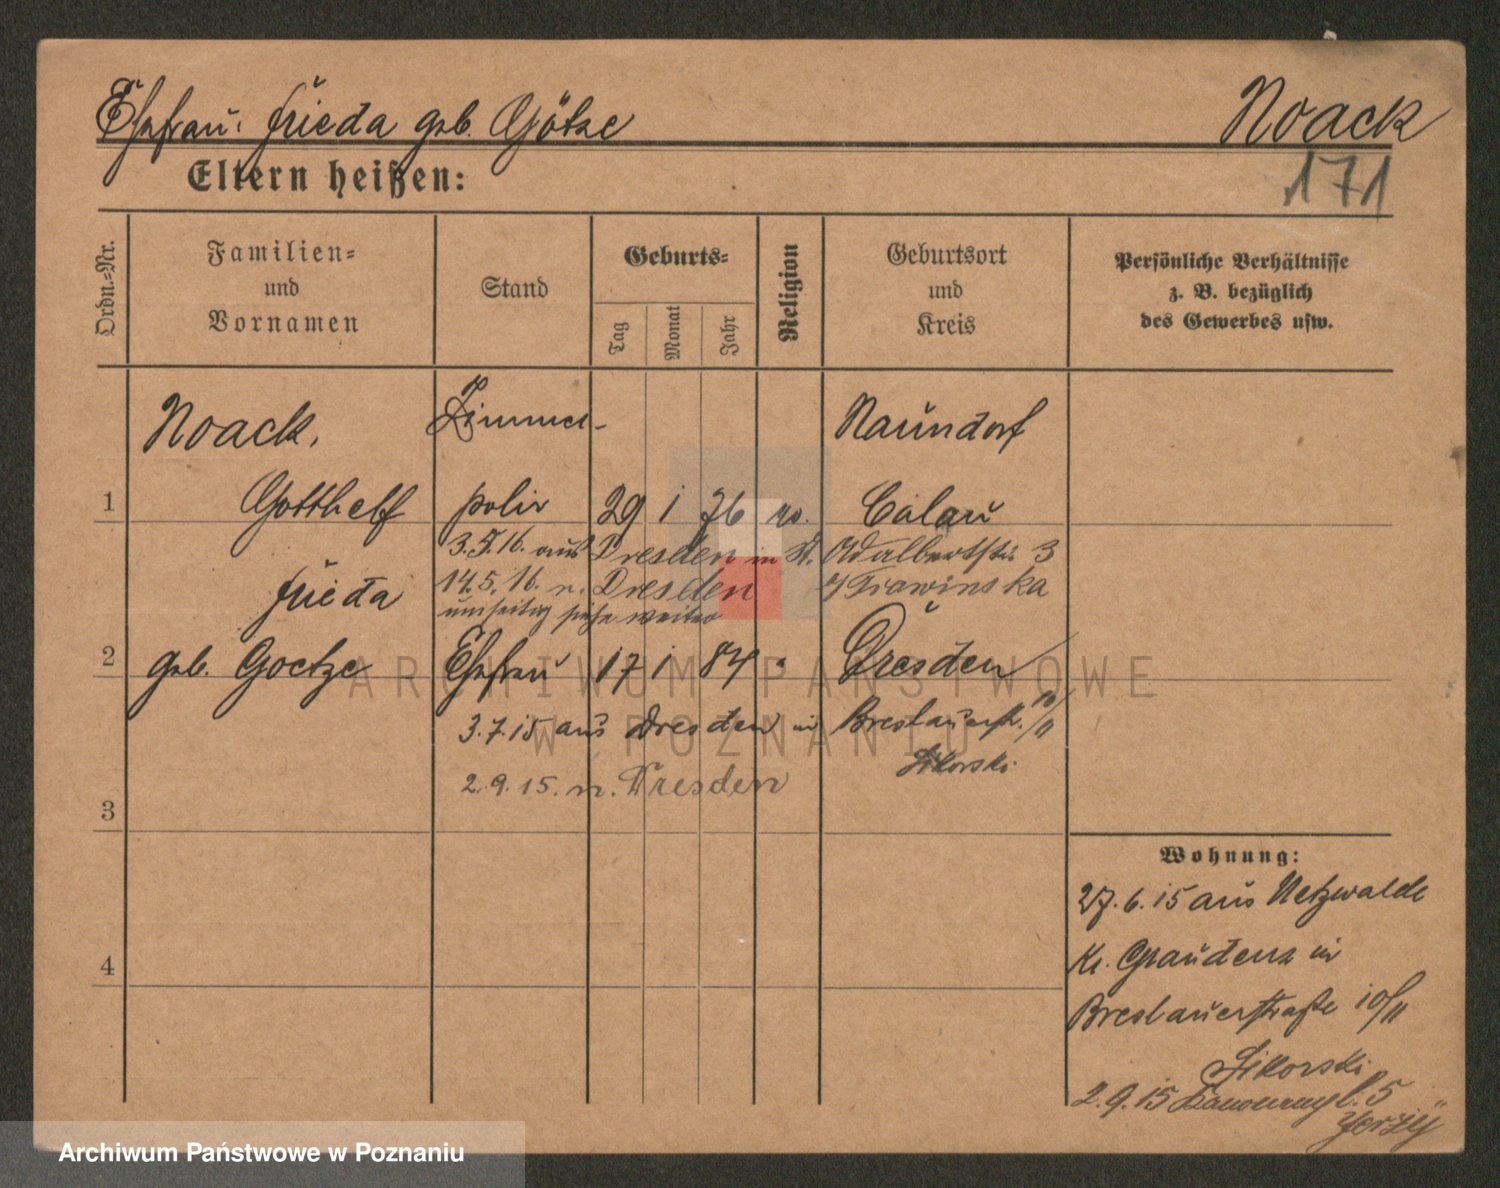 Ehefrau: Frieda geb. Götze
Noack
171
Eltern heißen:
Ordn.-Nr.
Familien-
und
Vornamen
Stand
Geburts-
Tag
Monat
Jahr
Religion
Geburtsort
und
Kreis
Persönliche Verhältnisse
z. B. bezüglich
des Gewerbes usw.
Noack, Zimmer- Naundorf
1 Gotthelf polir 29 1 76 Calau
3.5.16. aus Dresden in Adalbertstr. 3
Frieda 14.5.16. n. Dresden
umseitig siehe weiter
2 geb. Goetze Ehefrau 17 1 84 " Dresden
3.7.15 aus Dresden in Breslauerstr. 10/11
Sikorski
2.9.15. n. Dresden
3
Wohnung:
27.6.15 aus Netzwalde
4
Kr. Graudenz in
Breslauerstraße 10/11
Sikorski
2.9.15 5
Jerzÿ
ARCHIWUM PAŃSTWOWE
W POZNANIU
Archiwum Państwowe w Poznaniu